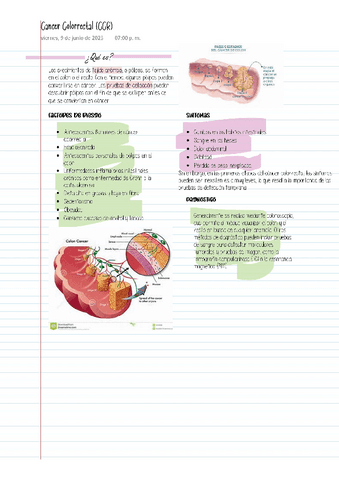 Cancer Colorrectal (CCR)
viernes, 9 de junio de 2023 07:00 p. m.
¿Qué es?
Los crecimientos de tejido anormal, o pólipos, se forman
en el colon o el recto. Con el tiempo, algunos pólipos pueden
convertirse en cáncer. Las pruebas de detección pueden
descubrir pólipos con el fin de que se extirpen antes de
que se conviertan en cáncer
FACTORES DE RIESGO
Antecedentes familiares de cáncer
colorrectal
Edad avanzada
Antecedentes personales de pólipos en el
colon
Enfermedades inflamatorias intestinales
crónicas como enfermedad de Crohn o la
colitis ulcerosa
Dieta alta en grasas y baja en fibra
Sedentarismo
Obesidad
Consumo excesivo de alcohol y tabaco
SINTOMAS
Cambios en los hábitos intestinales
Sangre en las heces
Dolor abdominal
Debilidad
Pérdida de peso inexplicada
DIAGNOSTICO
Generalmente se realiza mediante colonoscopia,
que permite al médico visualizar el colon y el
recto en busca de cualquier anomalía. Otros
métodos de diagnóstico pueden incluir pruebas
de sangre para detectar marcadores
tumorales y pruebas de imagen, como la
tomografía computarizada (TC) o la resonancia
magnética (RM).
Colon Cancer